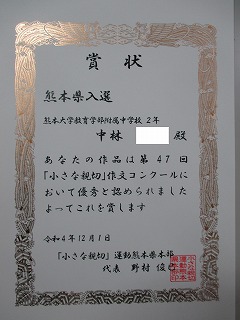 賞状
熊本県入選
熊本大学教育学部附属中学校 2年
中林 殿
あなたの作品は第47回
「小さな親切」作文コンクールに
おいて優秀と認められました
よってこれを賞します
令和4年12月1日
「小さな親切」運動熊本県本部
代表 野村俊